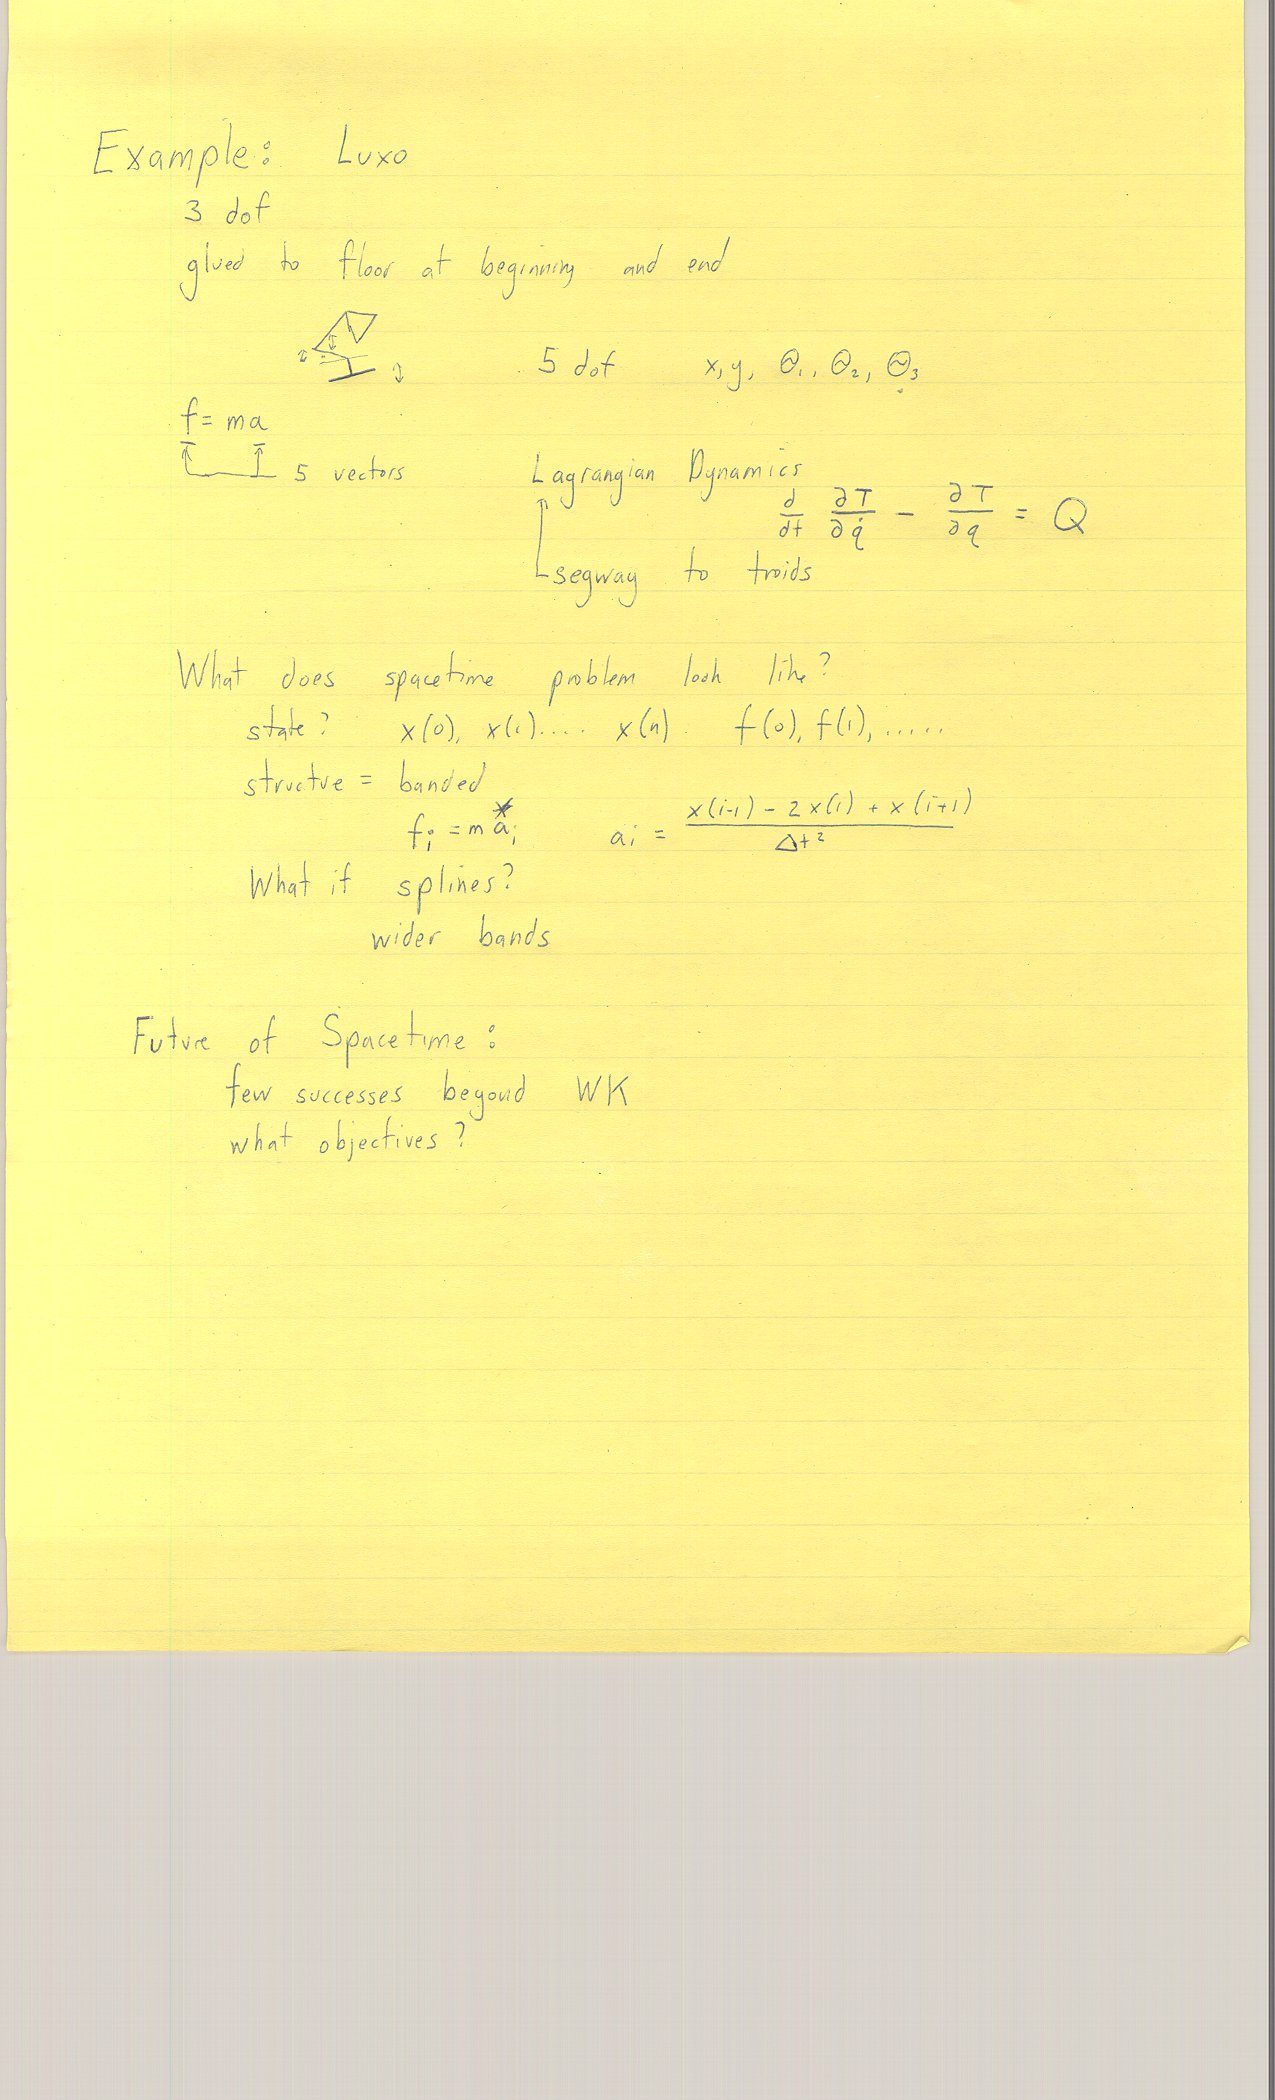 Example: Luxo
3 dof
glued to floor at beginning and end
5 dof x, y, Θ₁, Θ₂, Θ₃
f = ma
5 vectors
Lagrangian Dynamics
d/dt ∂T/∂q̇ − ∂T/∂q = Q
segway to troids
What does spacetime problem look like?
state? x(0), x(1).... x(n) f(0), f(1), .....
structure = banded
fᵢ = m aᵢ* aᵢ = (x(i-1) − 2x(i) + x(i+1)) / Δt²
What if splines?
wider bands
Future of Spacetime:
few successes beyond WK
what objectives?